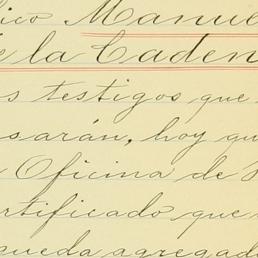 lico Manuel
de la Caden
s testigos que
sarán, hoy qu
Oficina de
rtificado que
queda agregad